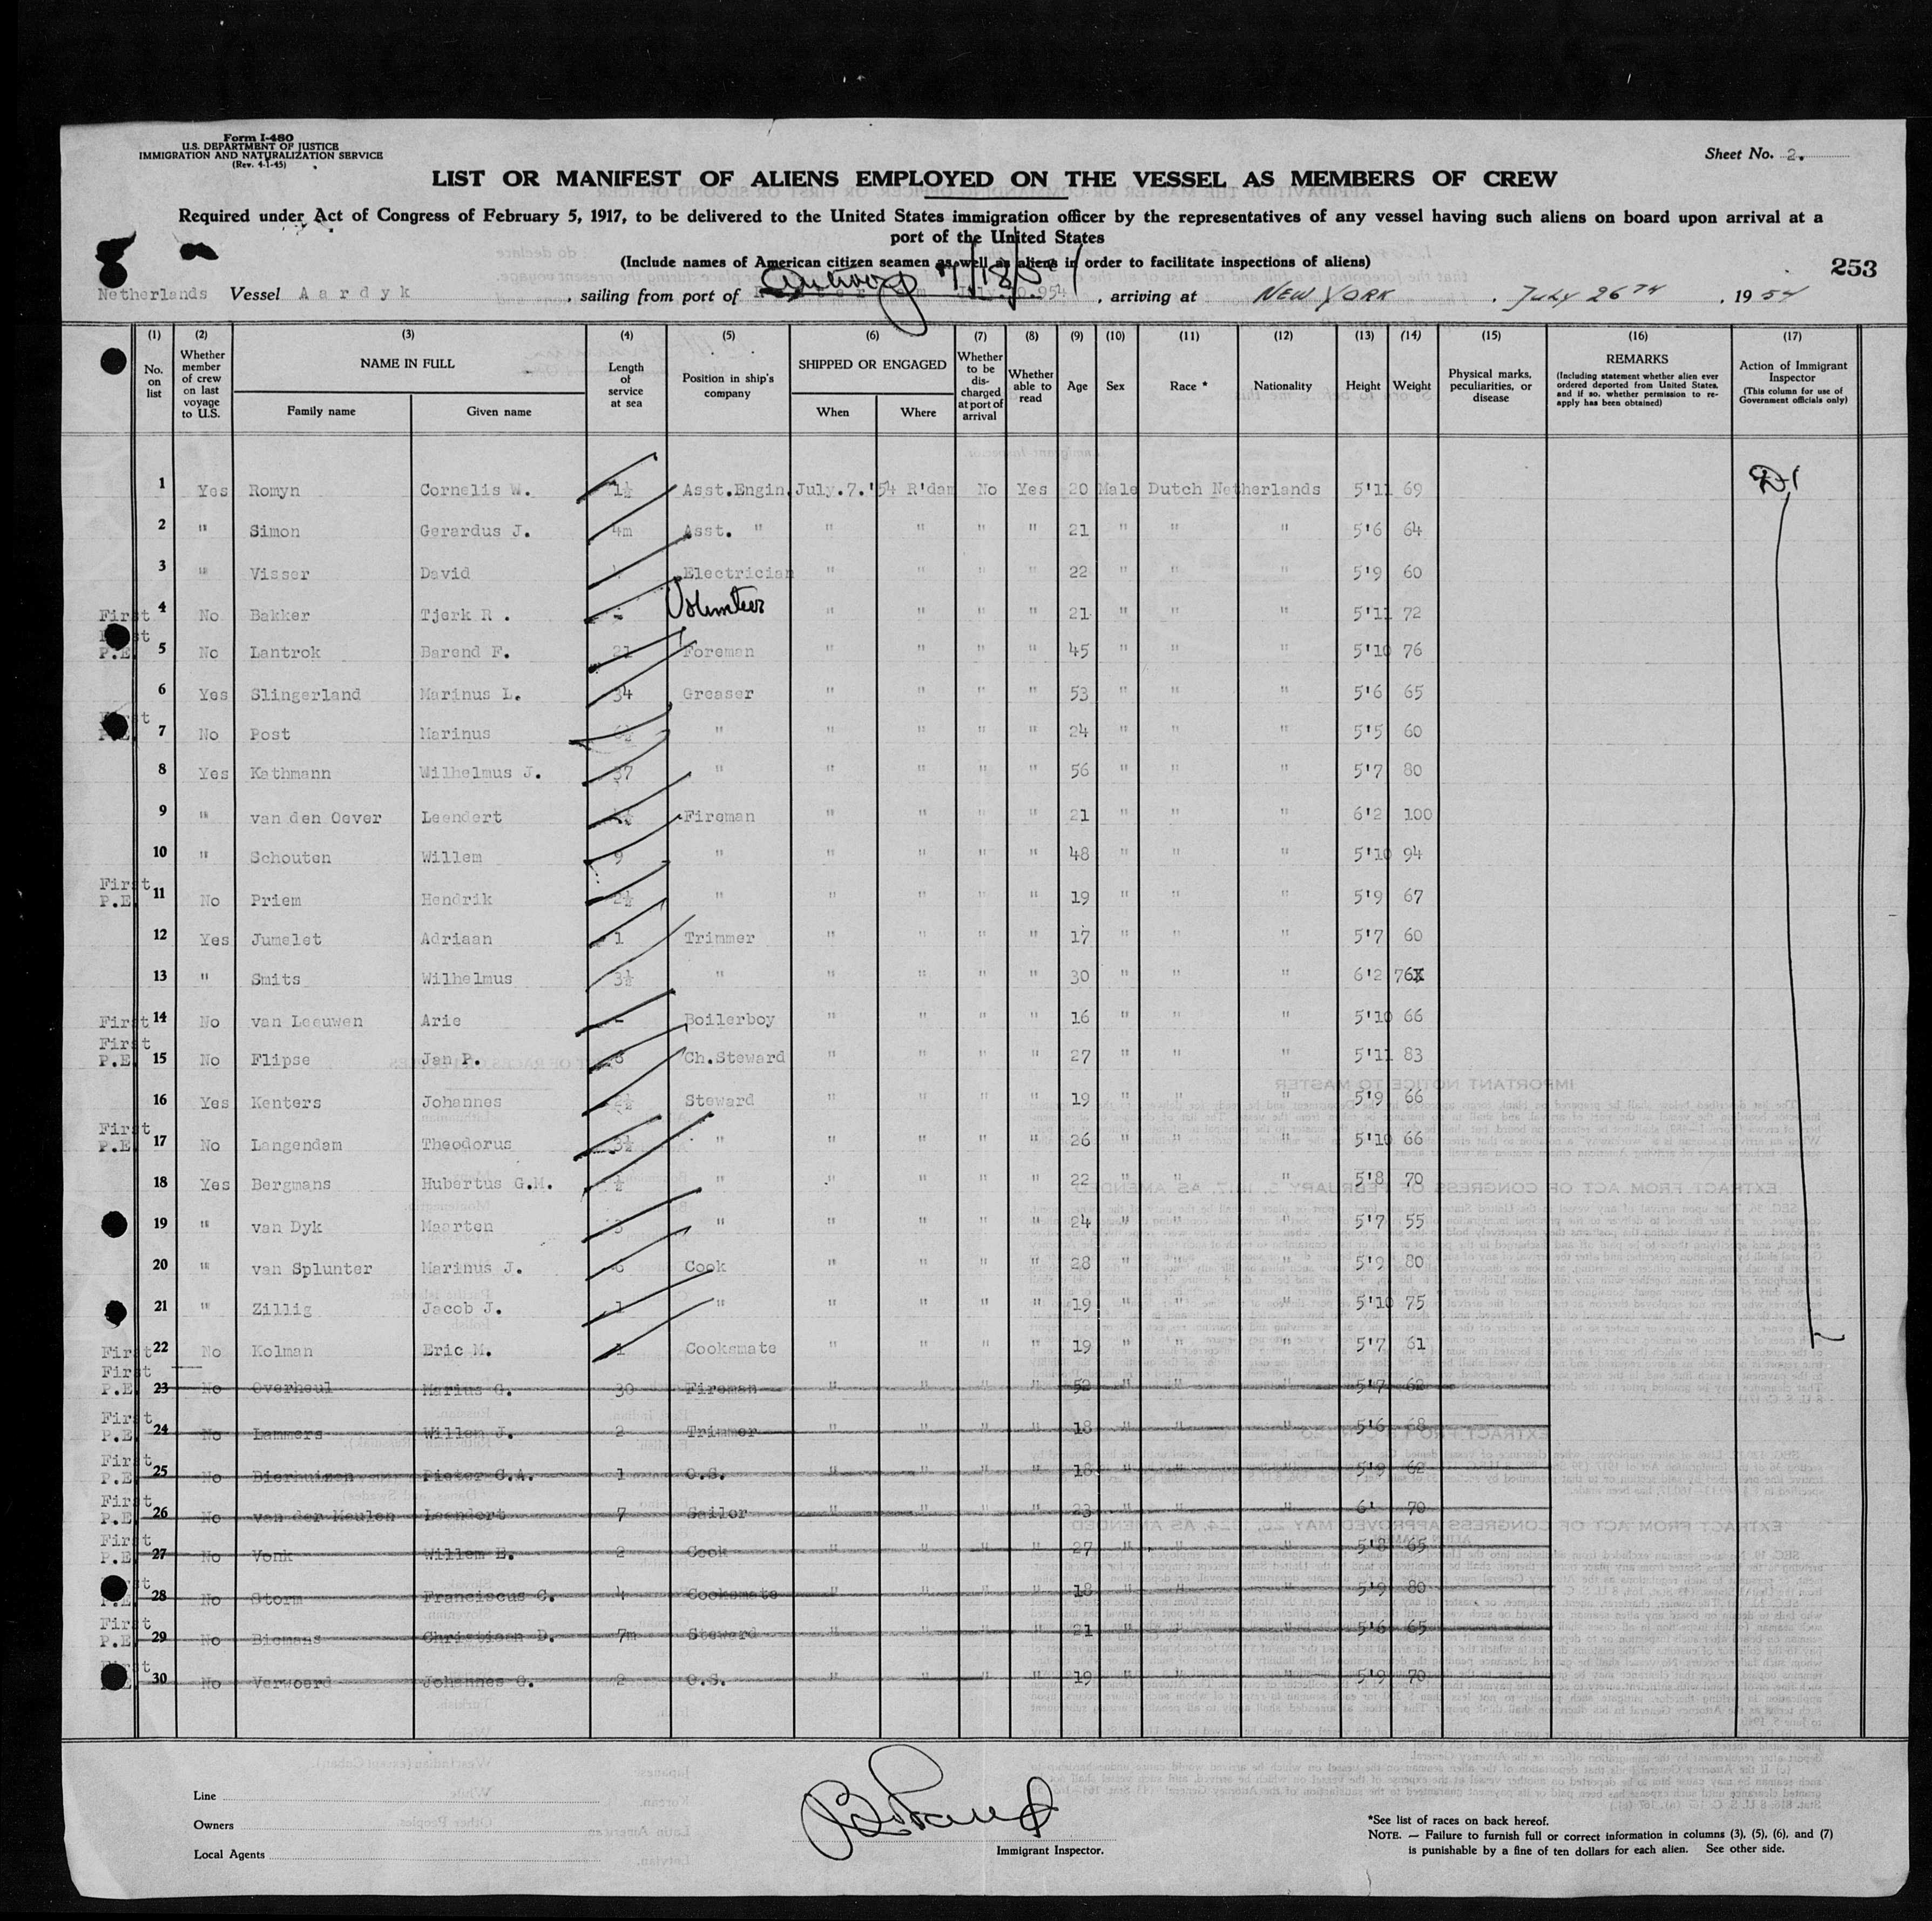 Form I-480
U.S. DEPARTMENT OF JUSTICE
IMMIGRATION AND NATURALIZATION SERVICE
(Rev. 4-1-45)
Sheet No. 2.
LIST OR MANIFEST OF ALIENS EMPLOYED ON THE VESSEL AS MEMBERS OF CREW
Required under Act of Congress of February 5, 1917, to be delivered to the United States immigration officer by the representatives of any vessel having such aliens on board upon arrival at a
port of the United States
(Include names of American citizen seamen as well as aliens in order to facilitate inspections of aliens)
253
Netherlands Vessel Aardyk, sailing from port of Antwerp 7/18/54, arriving at NEW YORK, July 26TH, 1954
(1) (2) (3) (4) (5) (6) (7) (8) (9) (10) (11) (12) (13) (14) (15) (16) (17)
No. on list
Whether member of crew on last voyage to U.S.
NAME IN FULL
Family name
Given name
Length of service at sea
Position in ship's company
SHIPPED OR ENGAGED
When
Where
Whether to be discharged at port of arrival
Whether able to read
Age
Sex
Race *
Nationality
Height
Weight
Physical marks, peculiarities, or disease
REMARKS
(Including statement whether alien ever ordered deported from United States, and if so, whether permission to re-apply has been obtained)
Action of Immigrant Inspector
(This column for use of Government officials only)
1 Yes Romyn Cornelis W. 1½ Asst.Engin. July.7.'54 R'dam No Yes 20 Male Dutch Netherlands 5'11 69
2 " Simon Gerardus J. 4m Asst. " " " " " 21 " " " 5'6 64
3 " Visser David Electrician " " " " 22 " " " 5'9 60
First 4 No Bakker Tjerk R. - Volunteer " " " " 21 " " " 5'11 72
First P.E. 5 No Lantrok Barend F. 21 Foreman " " " " 45 " " " 5'10 76
6 Yes Slingerland Marinus L. 34 Greaser " " " " 53 " " " 5'6 65
First P.E. 7 No Post Marinus 6½ " " " " " 24 " " " 5'5 60
8 Yes Kathmann Wilhelmus J. 37 " " " " " 56 " " " 5'7 80
9 " van den Oever Leendert Fireman " " " " 21 " " " 6'2 100
10 " Schouten Willem 9 " " " " " 48 " " " 5'10 94
First P.E. 11 No Priem Hendrik 2½ " " " " " 19 " " " 5'9 67
12 Yes Jumelet Adriaan 1 Trimmer " " " " 17 " " " 5'7 60
13 " Smits Wilhelmus 3½ " " " " " 30 " " " 6'2 76
First 14 No van Leeuwen Arie - Boilerboy " " " " 16 " " " 5'10 66
First P.E. 15 No Flipse Jan P. 8 Ch.Steward " " " " 27 " " " 5'11 83
16 Yes Kenters Johannes 2½ Steward " " " " 19 " " " 5'9 66
First P.E. 17 No Langendam Theodorus 3½ " " " " " 26 " " " 5'10 66
18 Yes Bergmans Hubertus G.M. ½ " " " " " 22 " " " 5'8 70
19 " van Dyk Maarten 3 " " " " " 24 " " " 5'7 55
20 " van Splunter Marinus J. 6 Cook " " " " 28 " " " 5'9 80
21 " Zillig Jacob J. 1 " " " " " 19 " " " 5'10 75
First 22 No Kolman Eric M. 1 Cooksmate " " " " 19 " " " 5'7 61
First P.E. 23 No Overheul Marius G. 30 Fireman " " " " 52 " " " 5'7 62
First P.E. 24 No Lammers Willem J. 2 Trimmer " " " " 18 " " " 5'6 68
First P.E. 25 No Bierhuizen Pieter C.A. 1 O.S. " " " " 18 " " " 5'9 62
First P.E. 26 No van der Meulen Leendert 7 Sailor " " " " 23 " " " 6' 70
First P.E. 27 No Vonk Willem E. 2 Cook " " " " 27 " " " 5'8 65
First P.E. 28 No Storm Franciscus C. 4 Cooksmate " " " " 18 " " " 5'9 80
First P.E. 29 No Biemans Christiaan D. 7m Steward " " " " 21 " " " 5'6 65
First P.E. 30 No Verwoerd Johannes C. 2 O.S. " " " " 19 " " " 5'9 70
Line
Owners
Local Agents
Immigrant Inspector.
*See list of races on back hereof.
NOTE. — Failure to furnish full or correct information in columns (3), (5), (6), and (7)
is punishable by a fine of ten dollars for each alien. See other side.